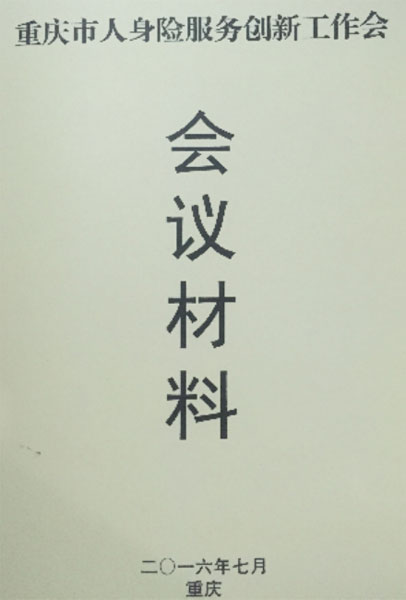 重庆市人身险服务创新工作会
会议材料
二〇一六年七月
重庆